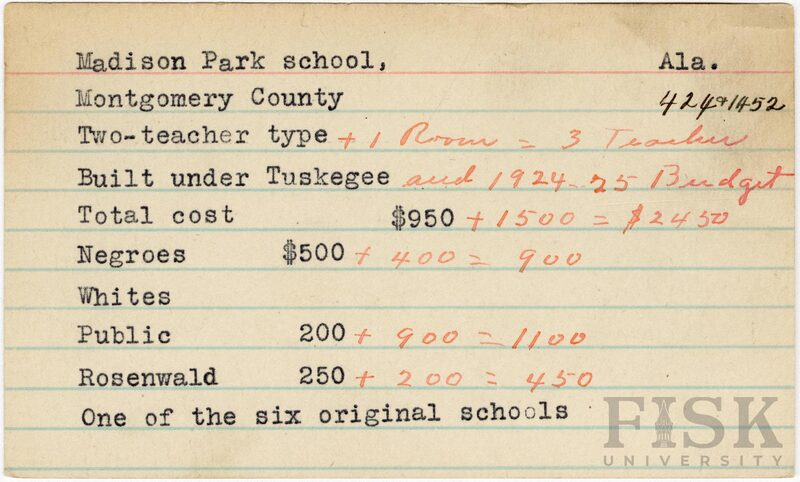 Madison Park school, Ala.
Montgomery County 424+1452
Two-teacher type + 1 Room = 3 Teacher
Built under Tuskegee and 1924-25 Budget
Total cost $950 + 1500 = $2450
Negroes $500 + 400 = 900
Whites
Public 200 + 900 = 1100
Rosenwald 250 + 200 = 450
One of the six original schools
FISK
UNIVERSITY